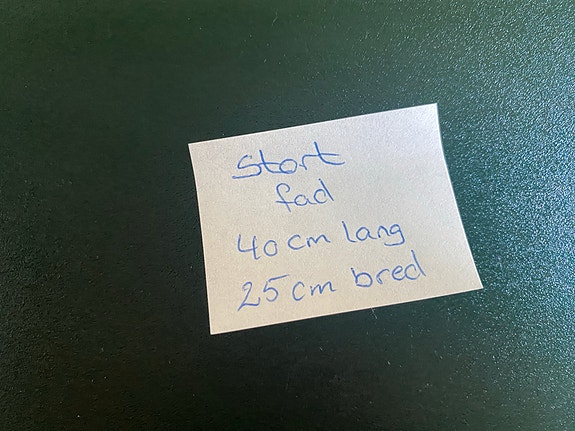 Stort
fad
40 cm lang
25 cm bred